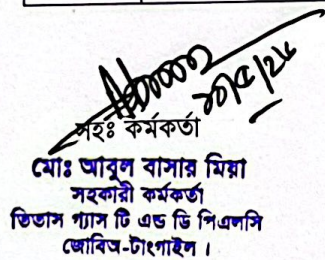 ২০/৫/২৫
সহঃ কর্মকর্তা
মোঃ আবুল বাসার মিয়া
সহকারী কর্মকর্তা
তিতাস গ্যাস টি এন্ড ডি পিএলসি
জোবিঅ-টাংগাইল।